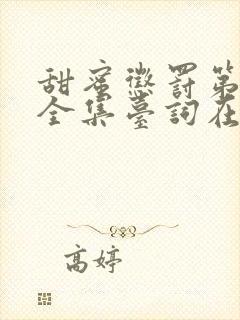 甜蜜懲罰第
全集臺詞在
高婷